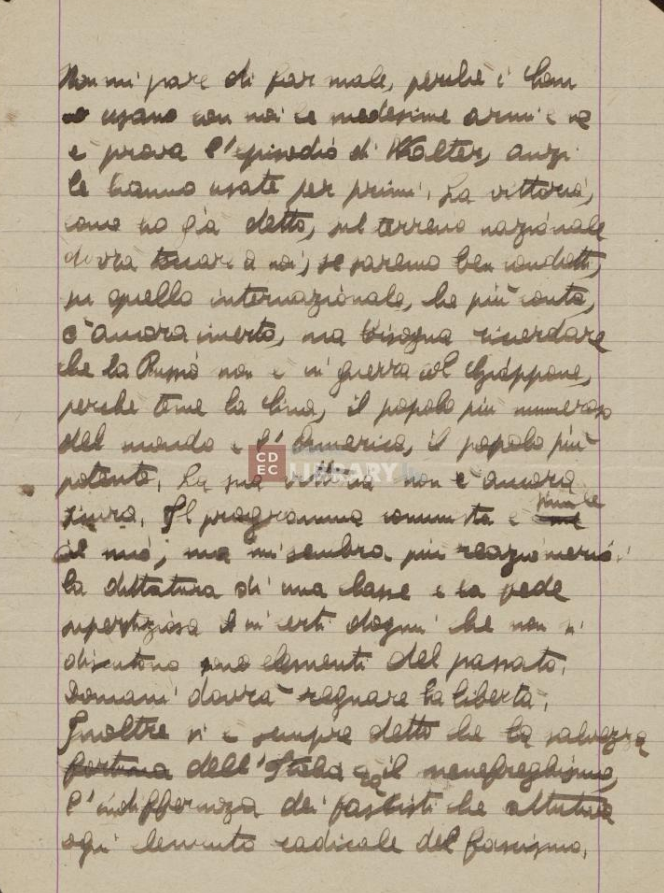 Non mi pare di far male, perchè i com
no usano con noi le medesime armi e ne
è prova l'episodio di Walter, anzi
le hanno usate per primi. La vittoria,
come ho già detto, sul terreno nazionale
dovrà toccare a noi, se saremo ben condotti,
su quello internazionale, che più conta,
è ancora incerto, ma bisogna ricordare
che la Russia non è in guerra col Giappone,
perche teme la Cina, il popolo più numeroso
del mondo e l'America, il popolo più
potente. La sua vittoria non è ancora
sicura. Il programma comunista è simile
al mio, ma mi sembra più reazionario:
la dittatura di una classe e la fede
superstiziosa in certi dogmi che non si
discutono sono elementi del passato.
Domani dovrà regnare la libertà.
Inoltre si è sempre detto che la salvezza
fortuna dell'Italia è il menefreghismo,
l'indifferenza dei fascisti che attutiva
ogni elemento radicale del fascismo.
CDEC
LIBRARY